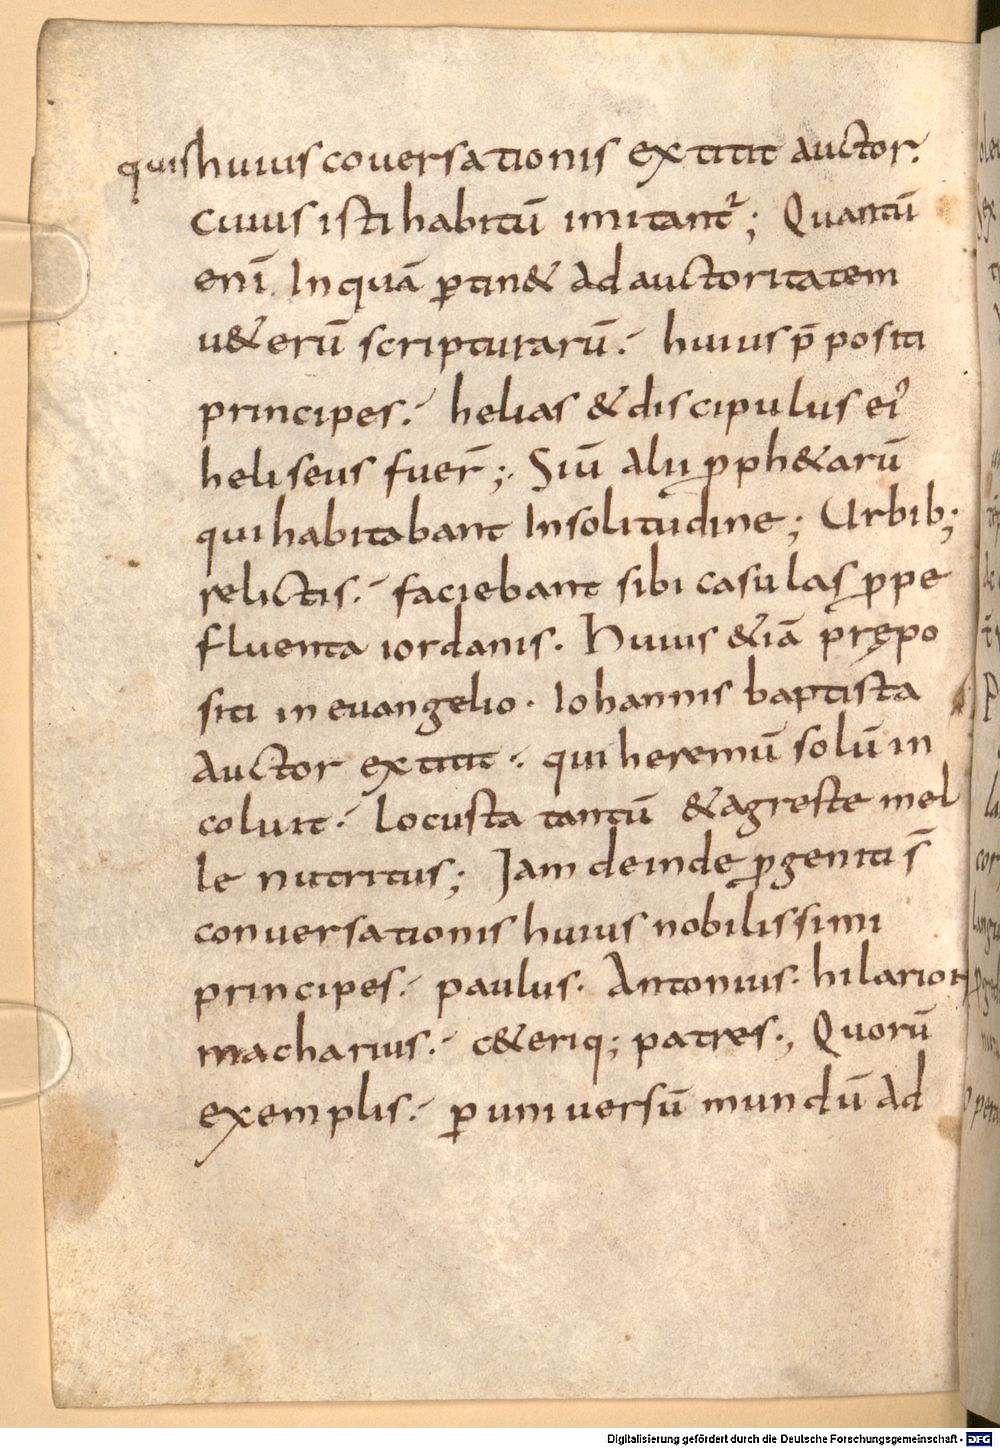 quis huius couersationis extitit auctor.
Cuius isti habitū imitant᷑; Quantū
enī. Inquā ꝑtin& ad auctoritatem
u&erū scripturarū. huius p̄positi
principes. helias & discipulus ei᾿
heliseus fuer̄; Siū alii ꝓph&arū
qui habitabant Insolitudine; Urbib;
relictis. faciebant sibi casulas ꝓpe
fluenta iordanis. Huius &iā prępo
siti in euangelio. Iohannis baptista
auctor extitit. qui heremū solū in
coluit. Locusta tantū &agreste mel
le nutritus; Jam deinde ꝓgeniti s̄
conuersationis huius nobilissimi
principes. paulus. Antonius. hilarion
macharius. c&eriq; patres., Quorū
exemplis. ꝑ uniuersū mundū ad
Digitalisierung gefördert durch die Deutsche Forschungsgemeinschaft - DFG